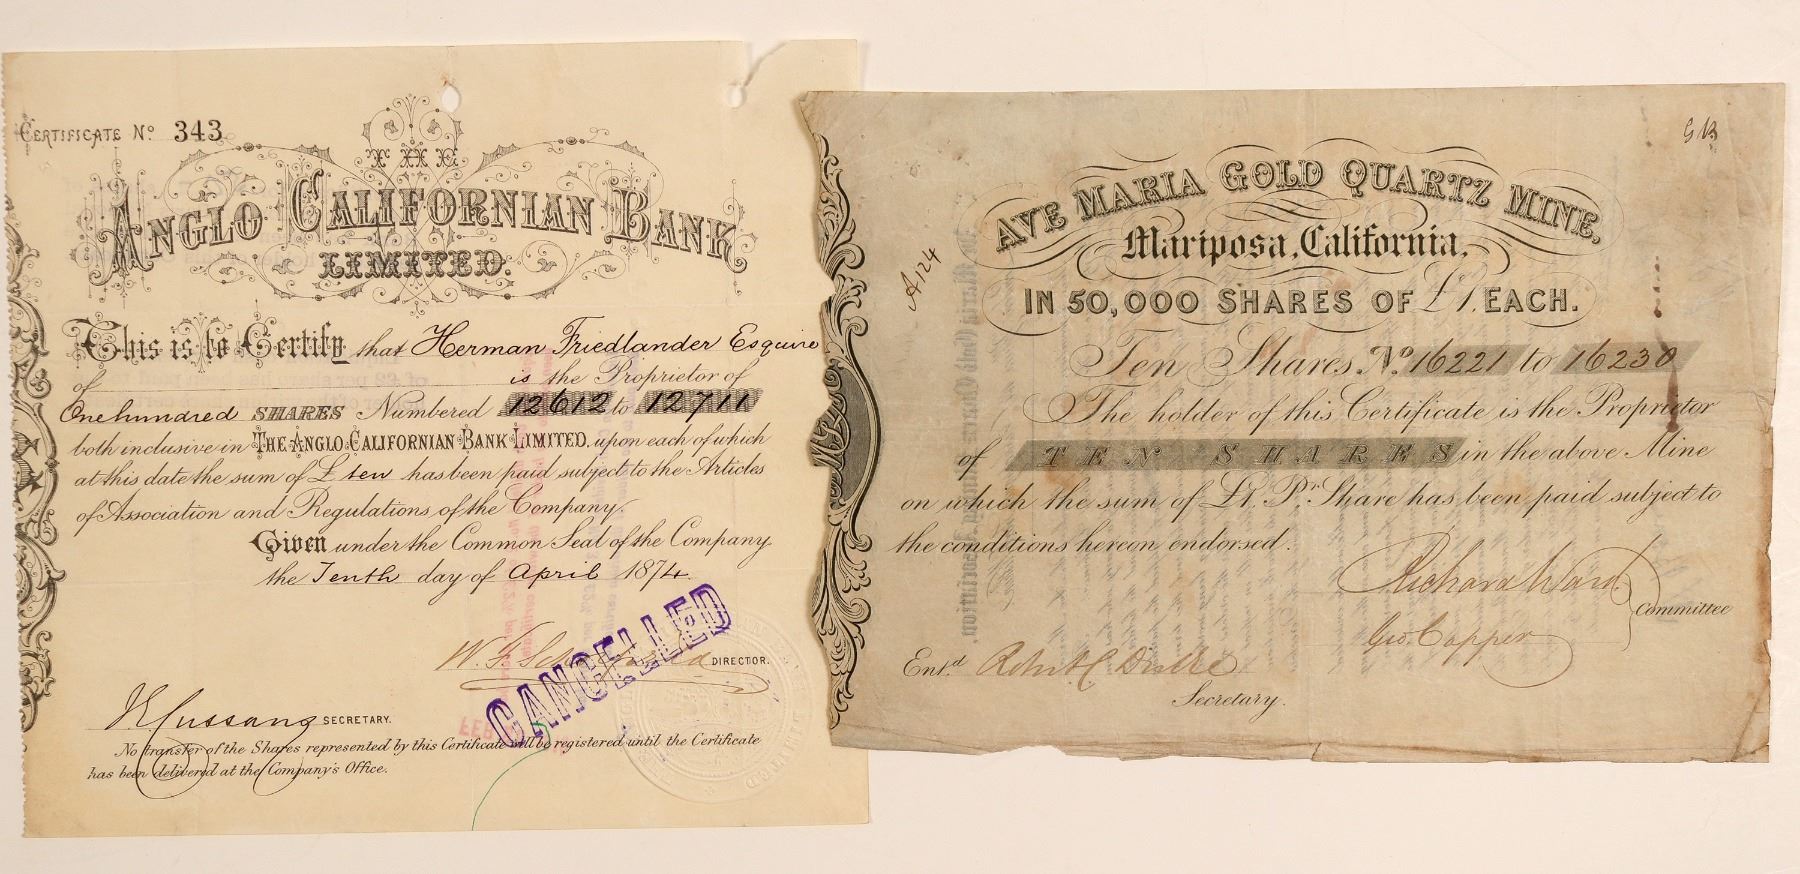 CERTIFICATE No. 343
THE
ANGLO CALIFORNIAN BANK
LIMITED.
This is to Certify that Herman Friedlander Esquire
of is the Proprietor of
One hundred SHARES Numbered 12612 to 12711
both inclusive in THE ANGLO-CALIFORNIAN BANK LIMITED, upon each of which
at this date the sum of £ ten has been paid subject to the Articles
of Association and Regulations of the Company.
Given under the Common Seal of the Company
the Tenth day of April 1874.
DIRECTOR.
CANCELLED
SECRETARY.
No transfer of the Shares represented by this Certificate will be registered until the Certificate
has been delivered at the Company's Office.
G B
A124
AVE MARIA GOLD QUARTZ MINE,
Mariposa, California,
IN 50,000 SHARES OF £1, EACH.
Ten Shares. No. 16221 to 16230
The holder of this Certificate is the Proprietor
of TEN SHARES in the above Mine
on which the sum of £1. Pr. Share has been paid subject to
the conditions hereon endorsed.
Richard Ward
Committee
Geo. Copper
Entd.
Secretary.